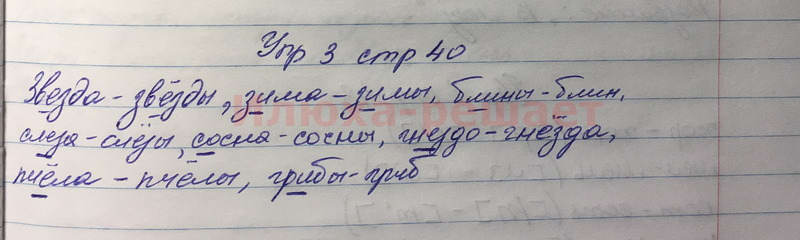 Упр 3 стр 40
Звезда - звёзды, зима - зимы, блины - блин,
Илюха-решает
слеза - слёзы, сосна - сосны, гнездо - гнёзда,
пчёла - пчёлы, грибы - гриб